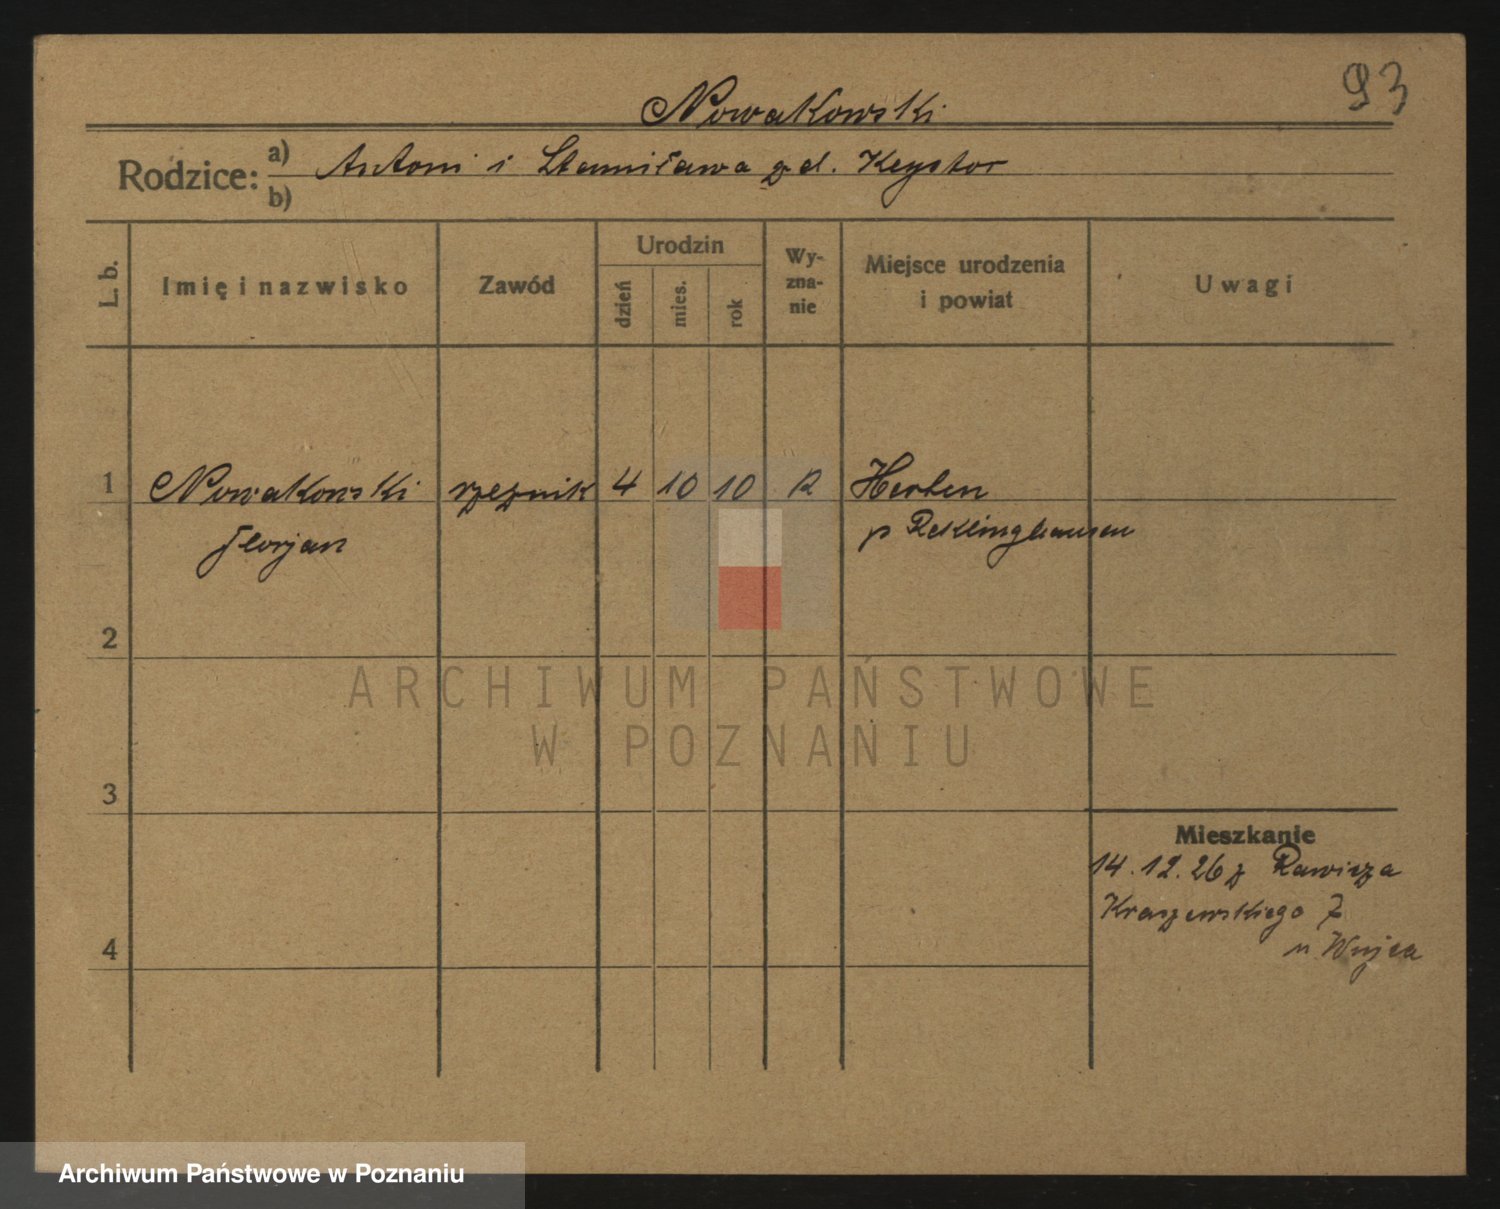 93
Nowakowski
Rodzice: a) Antoni i Stanisława z d. Keystor
b)
L. b. Imię i nazwisko Zawód Urodzin dzień mies. rok Wy-zna-nie Miejsce urodzenia i powiat Uwagi
1 Nowakowski rzeznik 4 10 10 R Herten
Florjan p Reklinghausen
2
ARCHIWUM PAŃSTWOWE
W POZNANIU
3
Mieszkanie
14.12.26 z Rawicza
Kraszewskiego 7
4 u Wujca
Archiwum Państwowe w Poznaniu